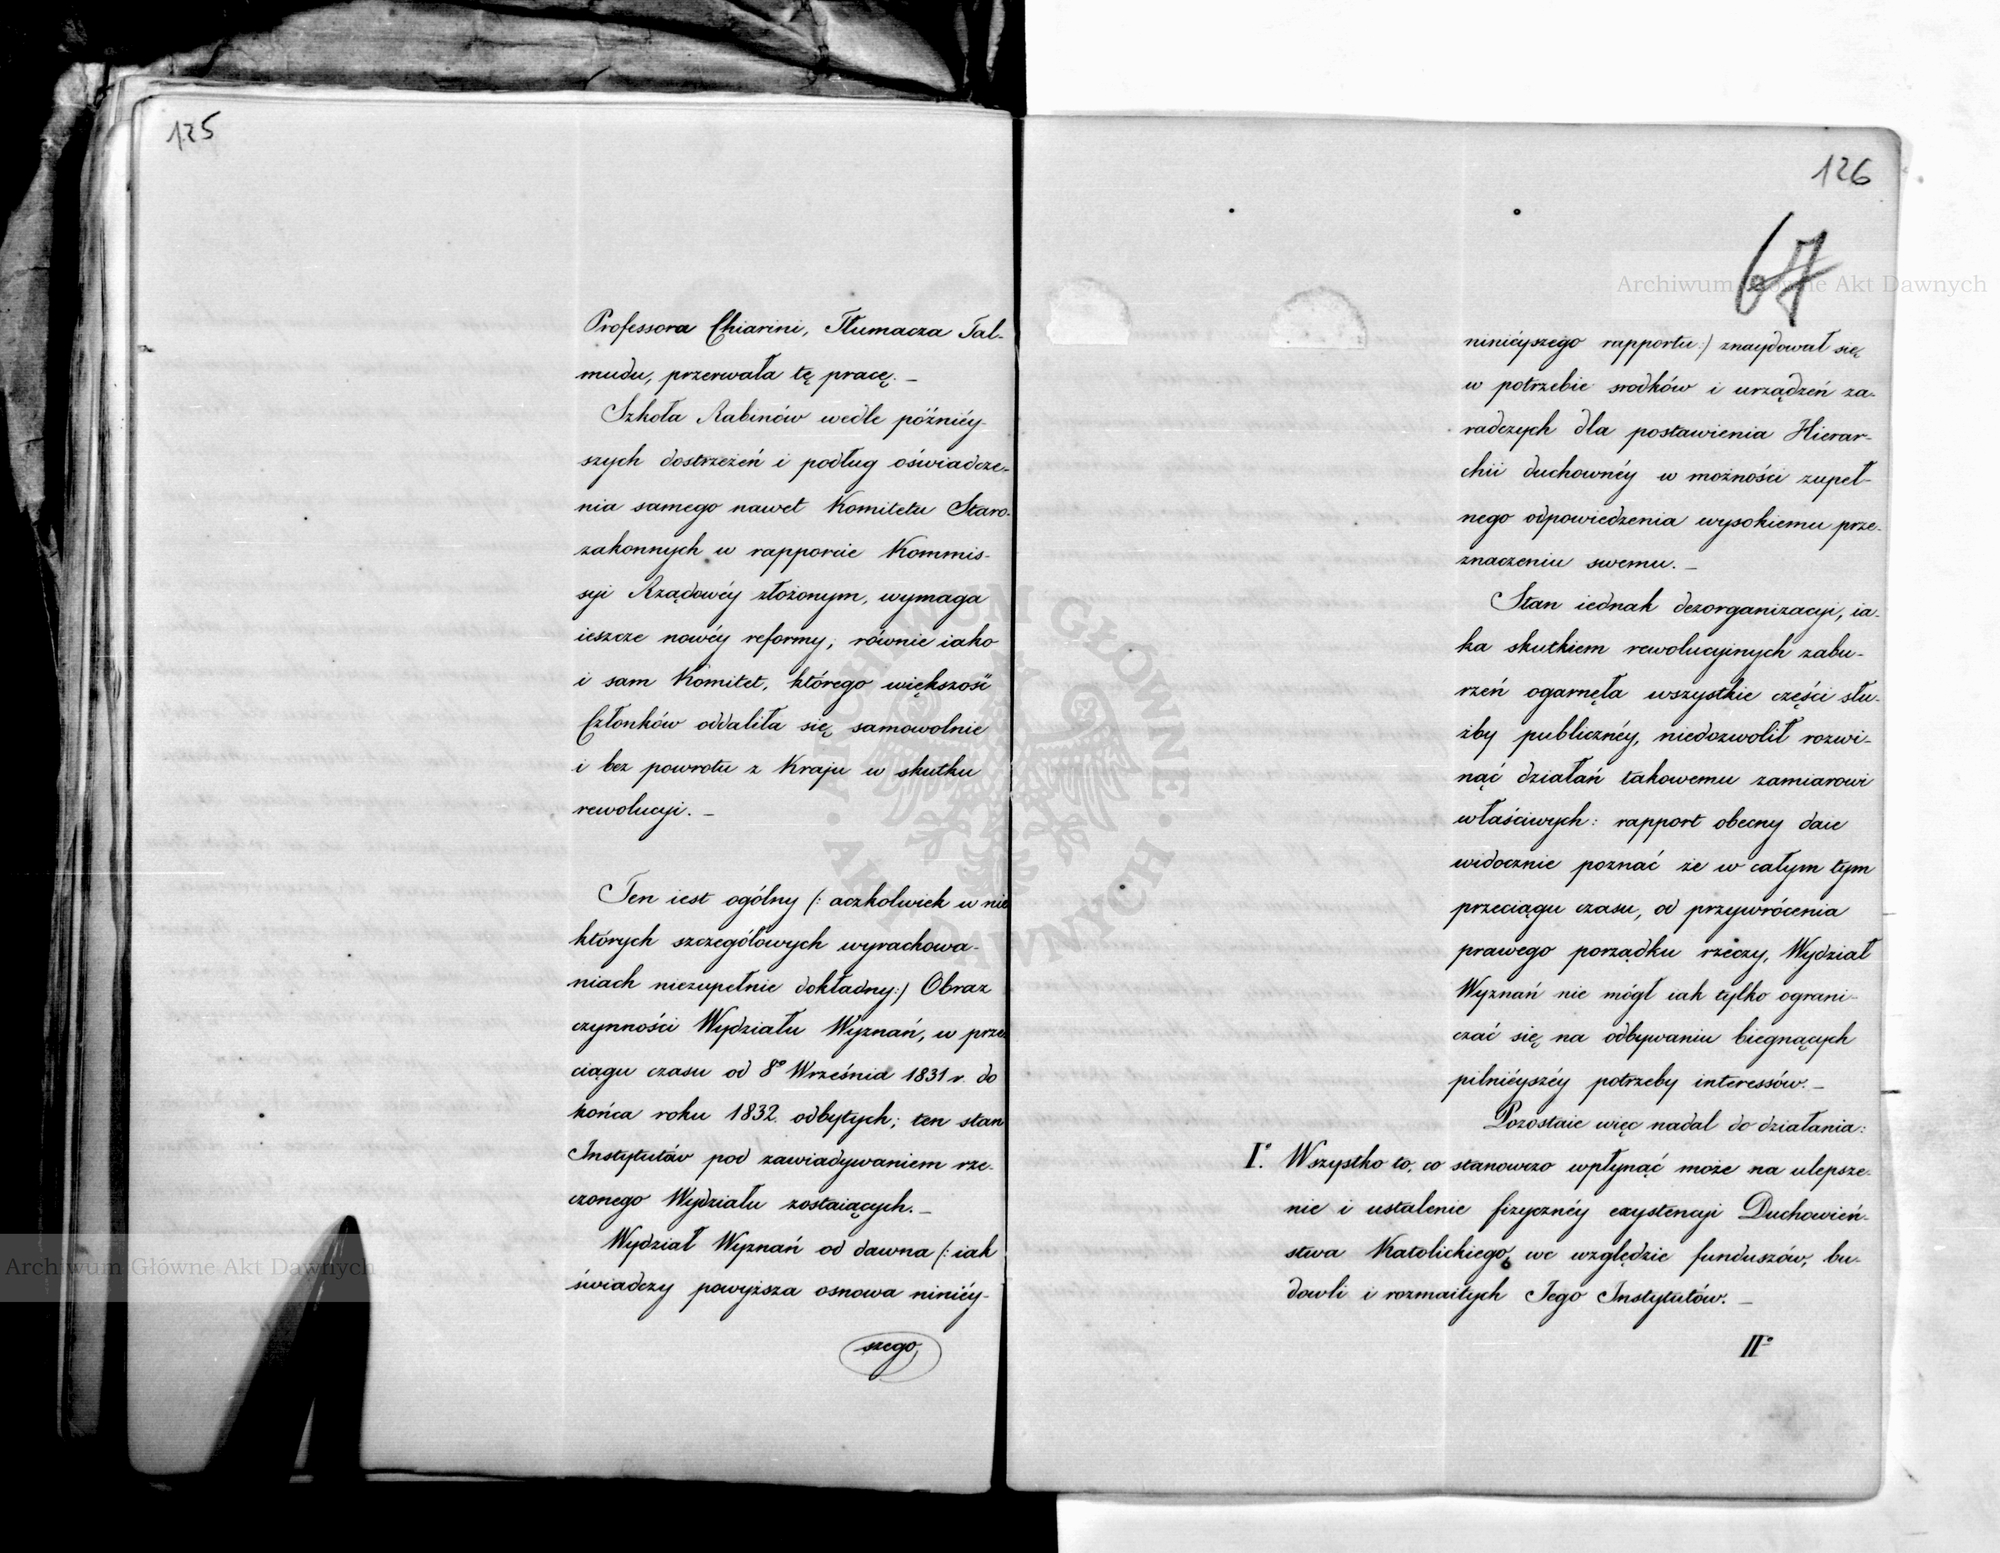 125
Professora Chiarini, Tłumacza Tal-
mudu, przerwała tę pracę. —
Szkoła Rabinów wedle późniéy-
szych dostrzeżeń i podług oświadcze-
nia samego nawet Komitetu Staro-
zakonnych w rapporcie Kommis-
syi Rządowéy złożonym, wymaga
ieszcze nowéy reformy; równie iako
i sam Komitet, którego większość
Członków oddaliła się samowolnie
i bez powrotu z Kraju w skutku
rewolucyi. —
Ten iest ogólny (: aczkolwiek w nie
których szczegółowych wyrachowa-
niach niezupełnie dokładny:) Obraz
czynności Wydziału Wyznań, w prze-
ciągu czasu od 8º Września 1831 r. do
końca roku 1832. odbytych; ten stan
Instytutów pod zawiadywaniem rze-
czonego Wydziału zostaiących. —
Wydział Wyznań od dawna (: iak
świadczy powyższa osnowa niniéy-
szego
126
67
niniéyszego rapportu:) znaydował się
w potrzebie srodków i urządzeń za-
radczych dla postawienia Hierar-
chii duchownéy w możności zupeł-
nego odpowiedzenia wysokiemu prze-
znaczeniu swemu. —
Stan iednak dezorganizacyi, ia-
ka skutkiem rewolucyinych zabu-
rzeń ogarnęła wszystkie części słu-
żby publicznéy, niedozwolił rozwi-
nąć działań takowemu zamiarowi
właściwych: rapport obecny daie
widocznie poznać że w całym tym
przeciągu czasu, od przywrócenia
prawego porządku rzeczy, Wydział
Wyznań nie mógł iak tylko ograni-
czać się na odbywaniu biegnących
pilniéyszéy potrzeby interessów. —
Pozostaie więc nadal do działania:
Iº. Wszystko to, co stanowczo wpłynąć może na ulepsze-
nie i ustalenie fizycznéy exystencyi Duchowień-
stwa Katolickiego, we względzie funduszów, bu-
dowli i rozmaitych Jego Instytutów. —
IIº
Archiwum Główne Akt Dawnych
Archiwum Główne Akt Dawnych
ARCHIWUM GŁÓWNE AKT DAWNYCH